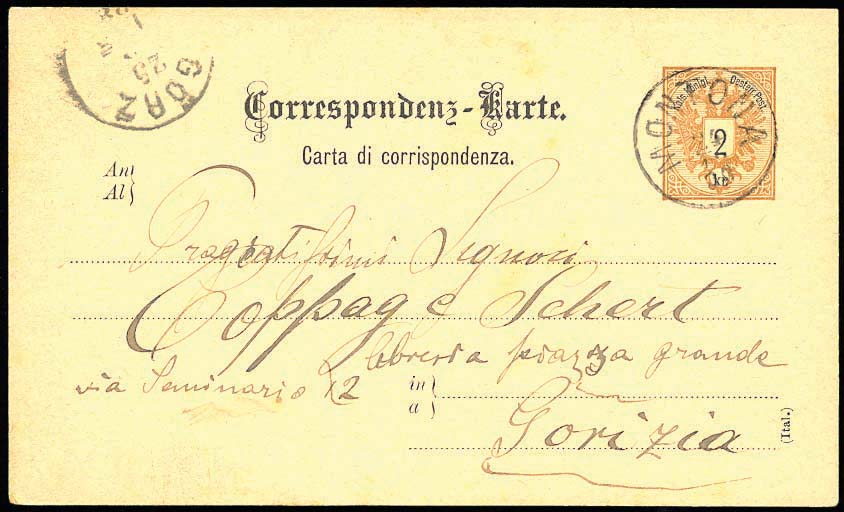 GÖRZ
25
Correspondenz-Karte.
Carta di corrispondenza.
Kais. Königl. Oesterr. Post.
2
kr.
MONTONA
An
Al
Pregiatissimi Signori
Coppag e Schert
libreria piazza grande
via Seminario 12
in
a
Gorizia
(Ital.)